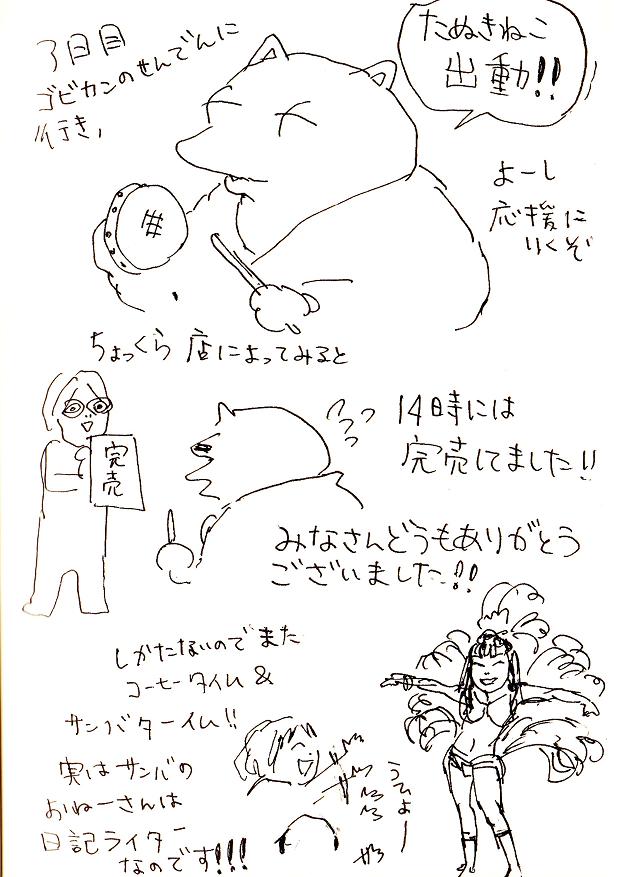 3日目
ゴビカンのせんでんに
行き、
たぬきねこ
出動!!
よーし
応援に
いくぞ
ちょっくら 店によってみると
完売
14時には
完売してました!!
みなさんどうもありがとう
ございました!!
しかたないのでまた
コーヒータイム &
サンバターイム!!
実はサンバの
おねーさんは
日記ライター
なのです!!!
うひょー